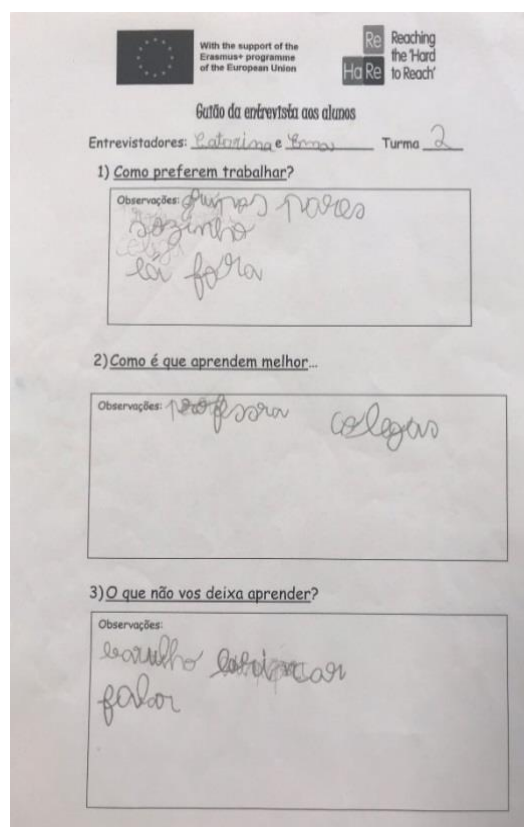 With the support of the
Erasmus+ programme
of the European Union
Re Reaching
the 'Hard
Ha Re to Reach'
Guião da entrevista aos alunos
Entrevistadores: Catarina e Turma 2
1) Como preferem trabalhar?
Observações: grupos pares
sozinho
lá fora
2) Como é que aprendem melhor...
Observações: professora colegas
3) O que não vos deixa aprender?
Observações:
barulho brincar
falar